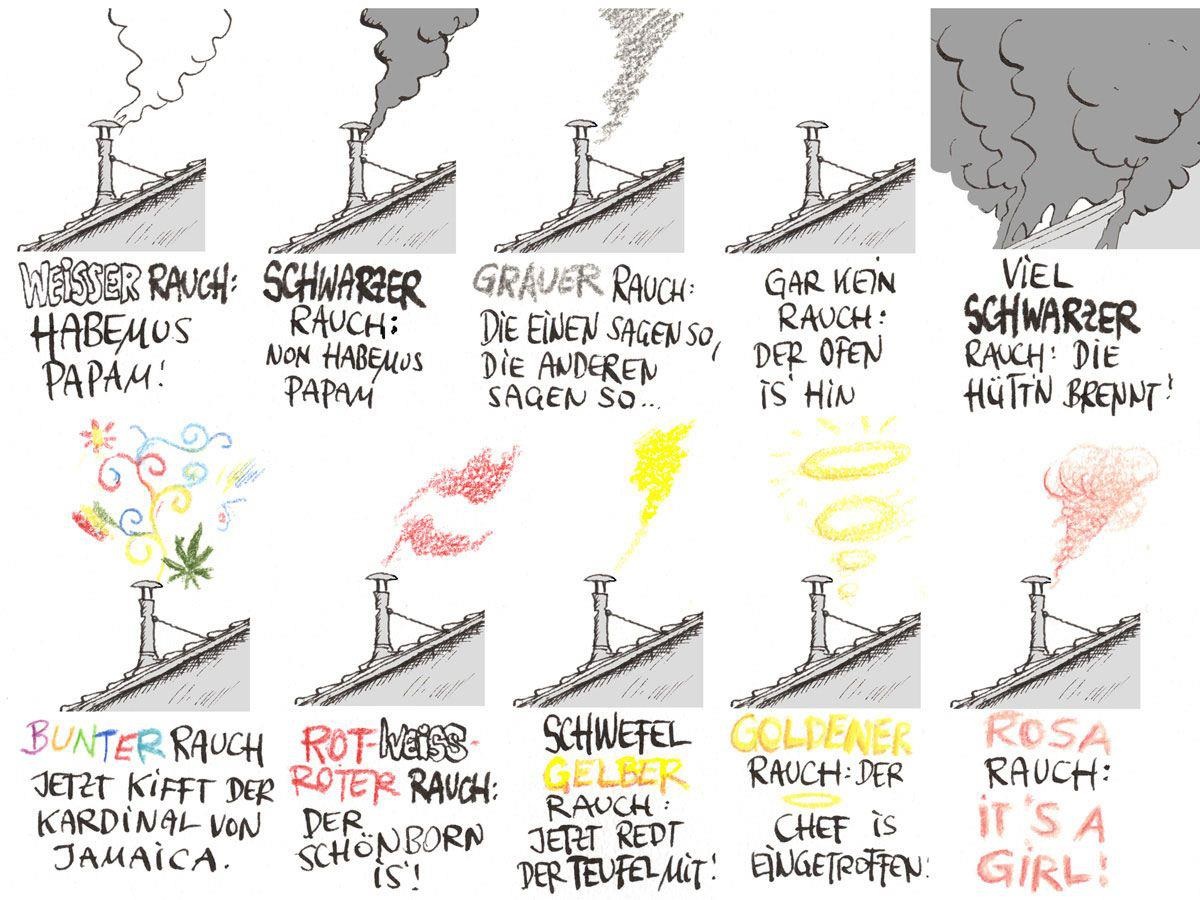 WEISSER RAUCH:
HABEMUS
PAPAM!
SCHWARZER
RAUCH:
NON HABEMUS
PAPAM
GRAUER RAUCH:
DIE EINEN SAGEN SO,
DIE ANDEREN
SAGEN SO...
GAR KEIN
RAUCH:
DER OFEN
IS' HIN
VIEL
SCHWARZER
RAUCH: DIE
HÜTT'N BRENNT!
BUNTER RAUCH
JETZT KIFFT DER
KARDINAL VON
JAMAICA.
ROT-WEISS-
ROTER RAUCH:
DER
SCHÖNBORN
IS'!
SCHWEFEL
GELBER
RAUCH:
JETZT REDT
DER TEUFEL MIT!
GOLDENER
RAUCH: DER
CHEF IS
EINGETROFFEN!
ROSA
RAUCH:
IT'S A
GIRL!